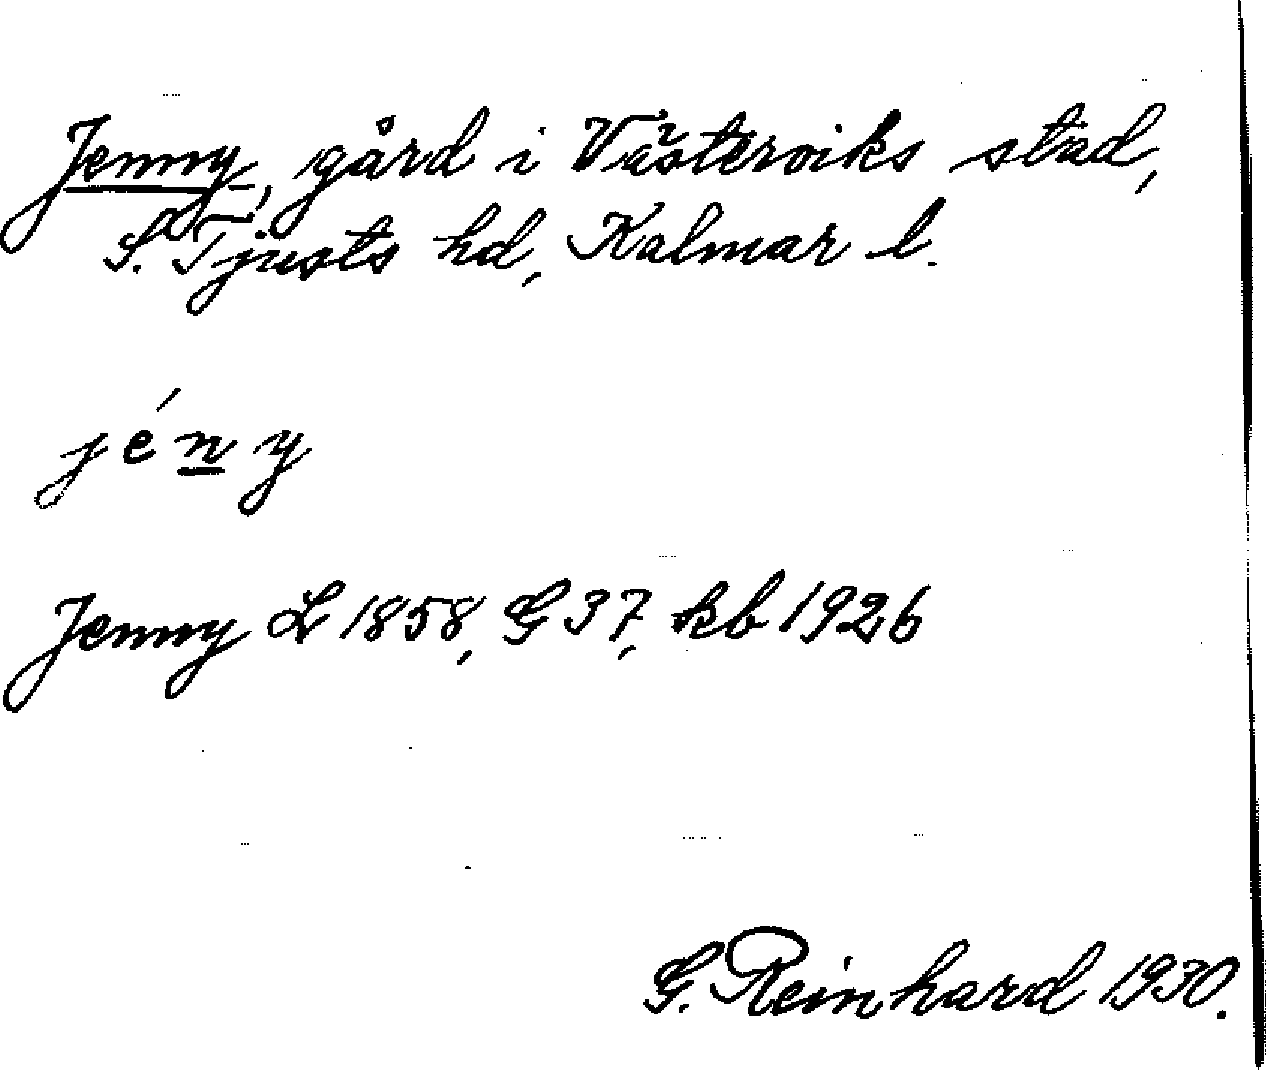 Jenny, gård i Västerviks stad,
S. Tjusts hd, Kalmar l.
jény
Jenny L 1858, G 37, kb 1926
G. Reinhard 1930.